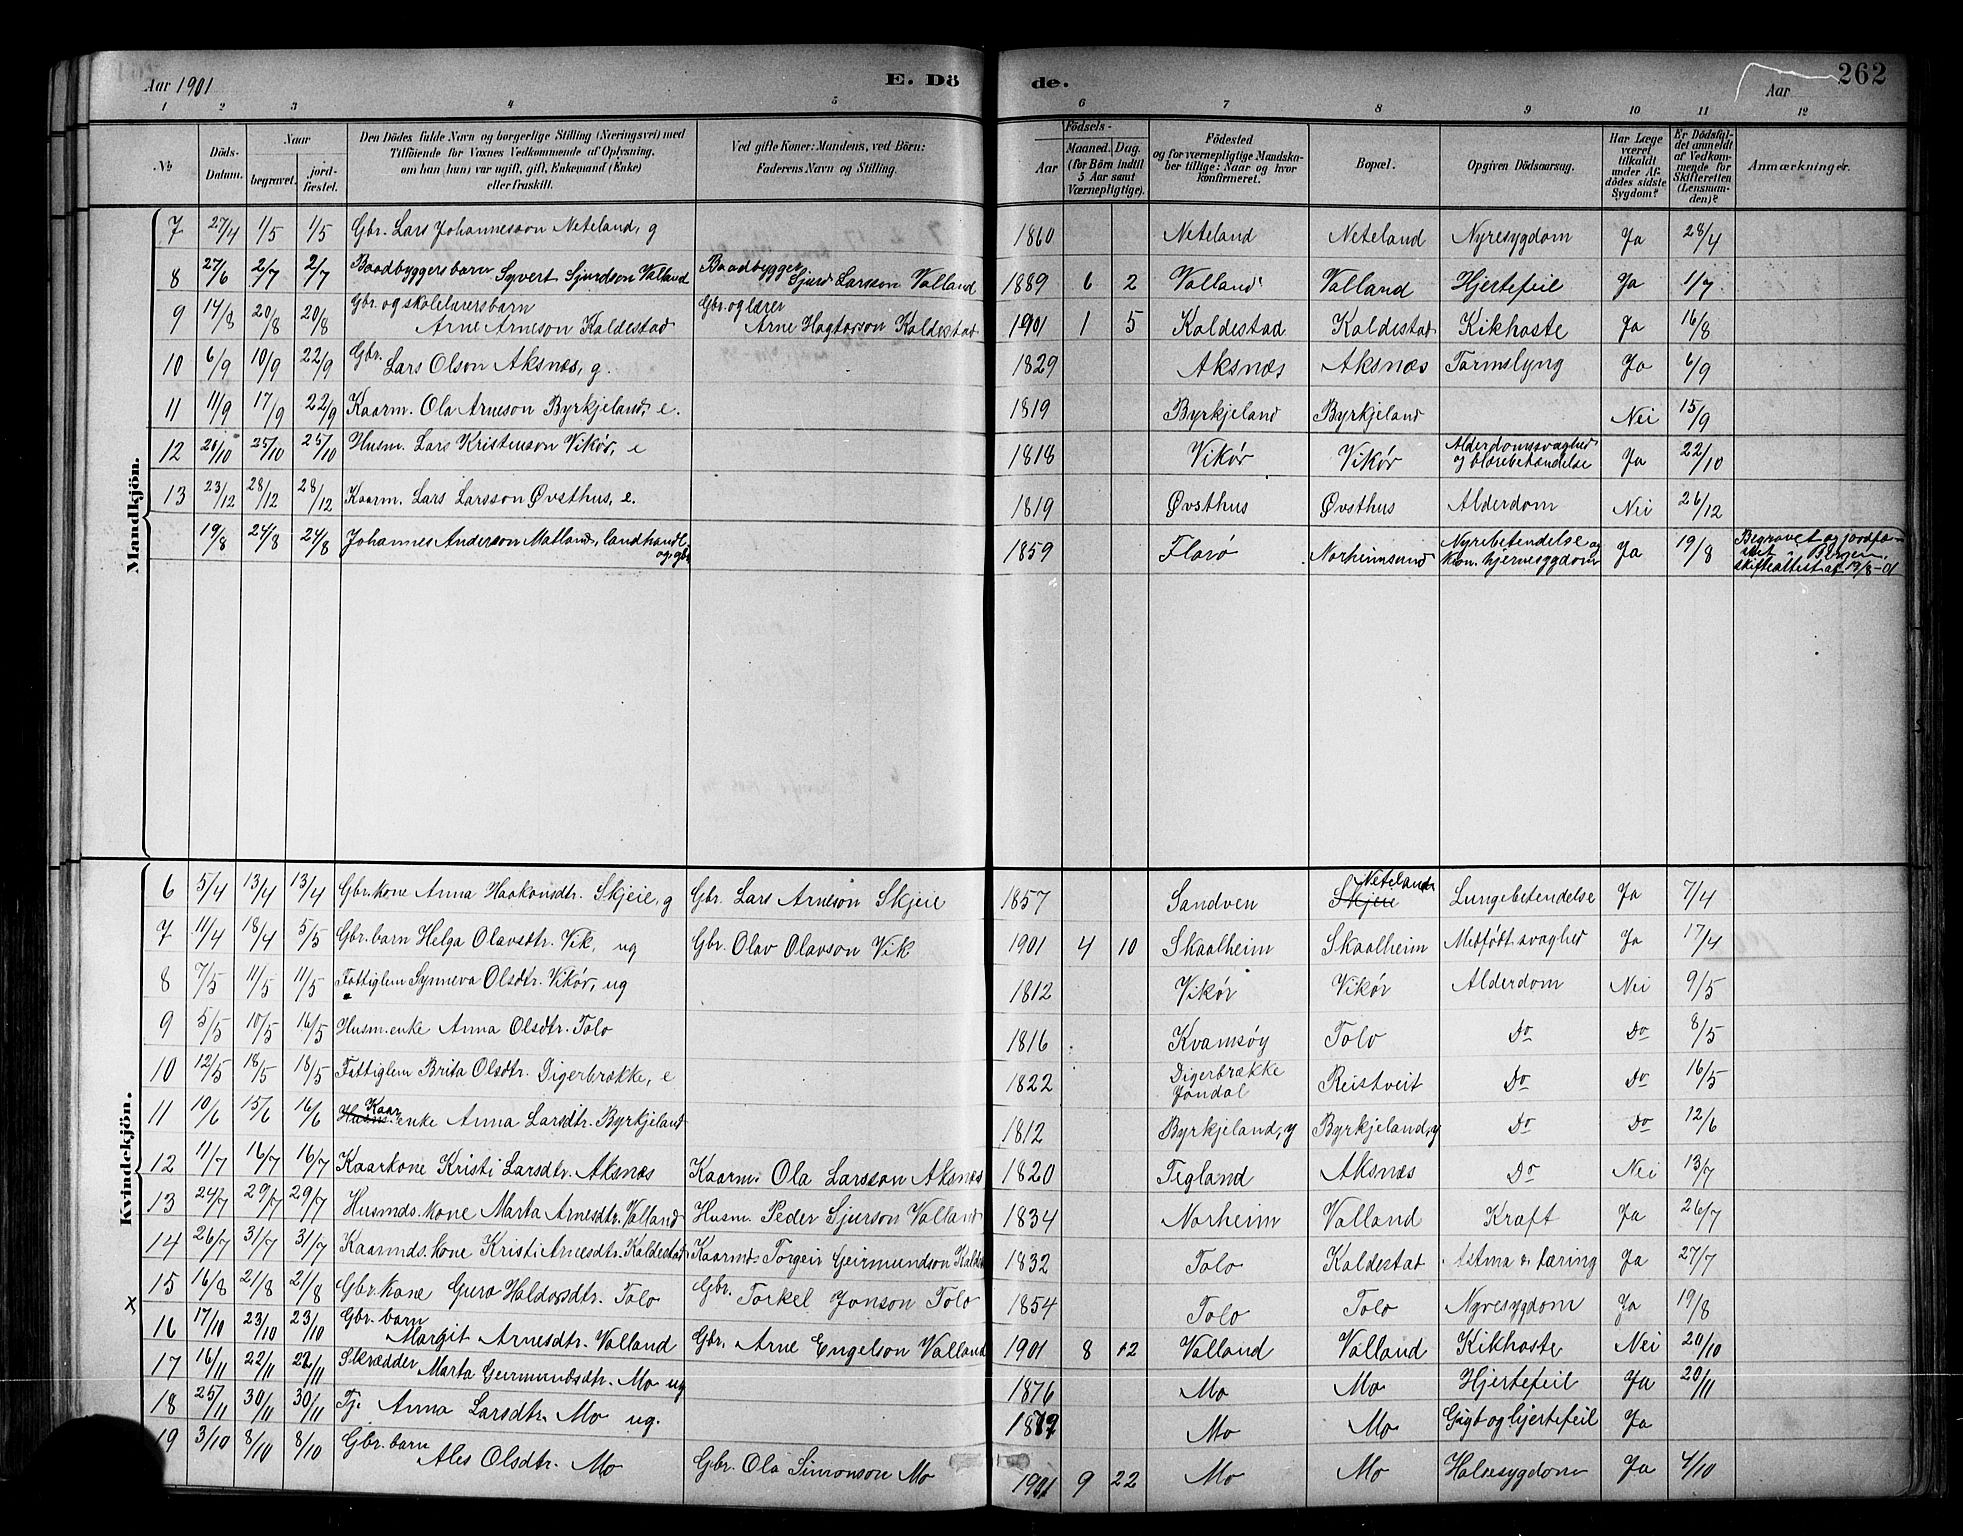 Aar 1901 E. Dö de. Aar 262
1 2 3 4 5 6 7 8 9 10 11 12
No Döds-Datum. Naar begravet. jordfæstet. Den Dödes fulde Navn og borgerlige Stilling (Næringsvei) med Tilföiende for Voxnes Vedkommende af Oplysning, om han (hun) var ugift, gift, Enkemand (Enke) eller fraskilt. Ved gifte Koner: Mandens, ved Börn: Faderens Navn og Stilling. Födsels- Aar Maaned. Dag. (for Börn indtil 5 Aar samt Værnepligtige). Födested og for værnepligtige Mandskaber tillige: Naar og hvor konfirmeret. Bopæl. Opgiven Dödsaarsag. Har Læge været tilkaldt under Afdödes sidste Sygdom? Er Dödsfaldet anmeldt af Vedkommende for Skifteretten (Lensmanden)? Anmærkninger.
Mandkjön.
7 27/4 1/5 1/5 Gbr. Lars Johannesson Neteland, g 1860 Neteland Neteland Nyresygdom Ja 28/4
8 27/6 2/7 2/7 Baadbyggersbarn Syvert Sjurdson Valland Baadbygger Sjurd Larsson Valland 1889 6 2 Valland Valland Hjertefeil Ja 1/7
9 14/8 20/8 20/8 Gbr. og skolelærersbarn Arne Arneson Kaldestad Gbr. og lærer Arne Hagtorson Kaldestad 1901 1 5 Kaldestad Kaldestad Kikhoste Ja 16/8
10 6/9 10/9 22/9 Gbr. Lars Olson Aksnæs, g. 1829 Aksnæs Aksnæs Tarmslyng Ja 6/9
11 11/9 17/9 22/9 Kaarm. Ola Arneson Byrkjeland, e. 1819 Byrkjeland Byrkjeland Nei 15/9
12 20/10 25/10 25/10 Husm. Lars Kristenson Vikør, e 1818 Vikør Vikør Alderdomssvaghed og blærebetændelse Ja 22/10
13 23/12 28/12 28/12 Kaarm. Lars Larsson Øvsthus, e. 1819 Øvsthus Øvsthus Alderdom Nei 26/12
19/8 24/8 24/8 Johannes Anderson Matland, landhandl. og gbr. 1859 Florø Norheimsund Nyrebetendelse og kron. hjernesygdom Ja 19/8 Begravet og jordfæstet i Bergen, skifteattest af 19/8-01
Kvindekjön.
6 5/4 13/4 13/4 Gbr. kone Anna Haakonsdtr. Skjeie, g Gbr. Lars Arneson Skjeie 1857 Sandven Skjeie Neteland Lungebetendelse Ja 7/4
7 11/4 18/4 5/5 Gbr. barn Helga Olavsdtr. Vik, ug Gbr. Olav Olavson Vik 1901 4 10 Skaalheim Skaalheim Medfødt svaghed Ja 17/4
8 7/5 11/5 11/5 Fattiglem Synneva Olsdtr. Vikør, ug 1812 Vikør Vikør Alderdom Nei 9/5
9 5/5 10/5 16/5 Husm. enke Anna Olsdtr. Tolo 1816 Kvamsøy Tolo Do Do 8/5
10 12/5 18/5 18/5 Fattiglem Brita Olsdtr. Digerbrække, e 1822 Digerbrække Jondal Reistveit Do Do 16/5
11 10/6 15/6 16/6 Husm. Kaar enke Anna Larsdtr. Byrkjeland 1812 Byrkjeland, y Byrkjeland, y Do Do 12/6
12 11/7 16/7 16/7 Kaarkone Kristi Larsdtr. Aksnæs Kaarm. Ola Larsson Aksnæs 1820 Tegland Aksnæs Do Nei 13/7
13 24/7 29/7 29/7 Husmds. kone Marta Arnesdtr. Valland Husm. Peder Sjurson Valland 1834 Norheim Valland Kræft Ja 26/7
14 26/7 31/7 31/7 Kaarmds. kone Kristi Arnesdtr. Kaldestad Kaarmd. Torgeir Geirmundson Kaldest 1832 Tolo Kaldestad Astma & tæring Ja 27/7
15 16/8 21/8 21/8 Gbr. kone Guro Haldorsdtr. Tolo Gbr. Torkel Jonson Tolo 1854 Tolo Tolo Nyresygdom Ja 19/8
x 16 17/10 23/10 23/10 Gbr. barn Margit Arnesdtr. Valland Gbr. Arne Engelson Valland 1901 8 12 Valland Valland Kikhoste Nei 20/10
17 16/11 22/11 22/11 Skrædder Marta Geirmundsdtr. Mo ug 1876 Mo Mo Hjertefeil Ja 20/11
18 25/11 30/11 30/11 Tj. Anna Larsdtr. Mo ug. Mo Mo Gigt og hjertefeil Ja
19 3/10 8/10 8/10 Gbr. barn Ales Olsdtr. Mo Gbr. Ola Simonson Mo 1901 9 22 Mo Mo Halssygdom Ja 4/10